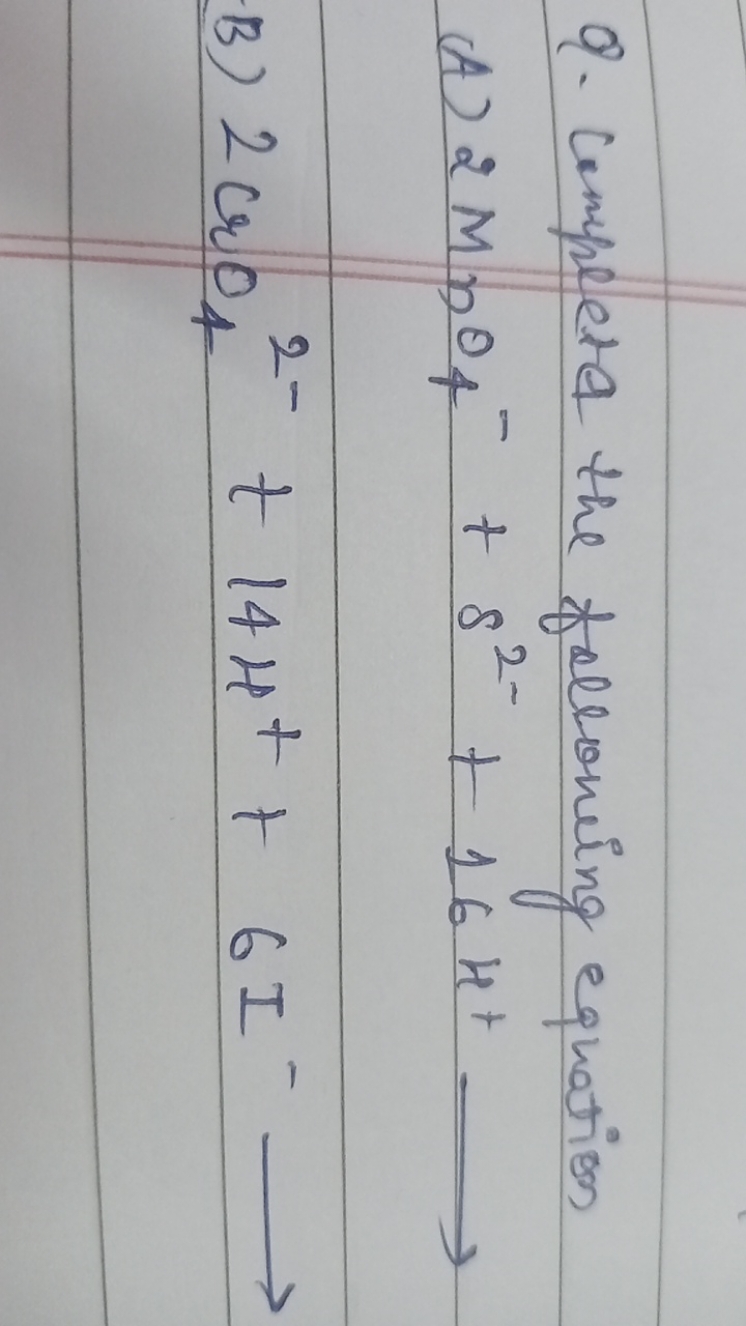 Q. Complete the following equation
(A) 2MnO₄⁻ + S²⁻ + 16H⁺ ⟶
(B) 2CrO₄²⁻ + 14H⁺ + 6I⁻ ⟶